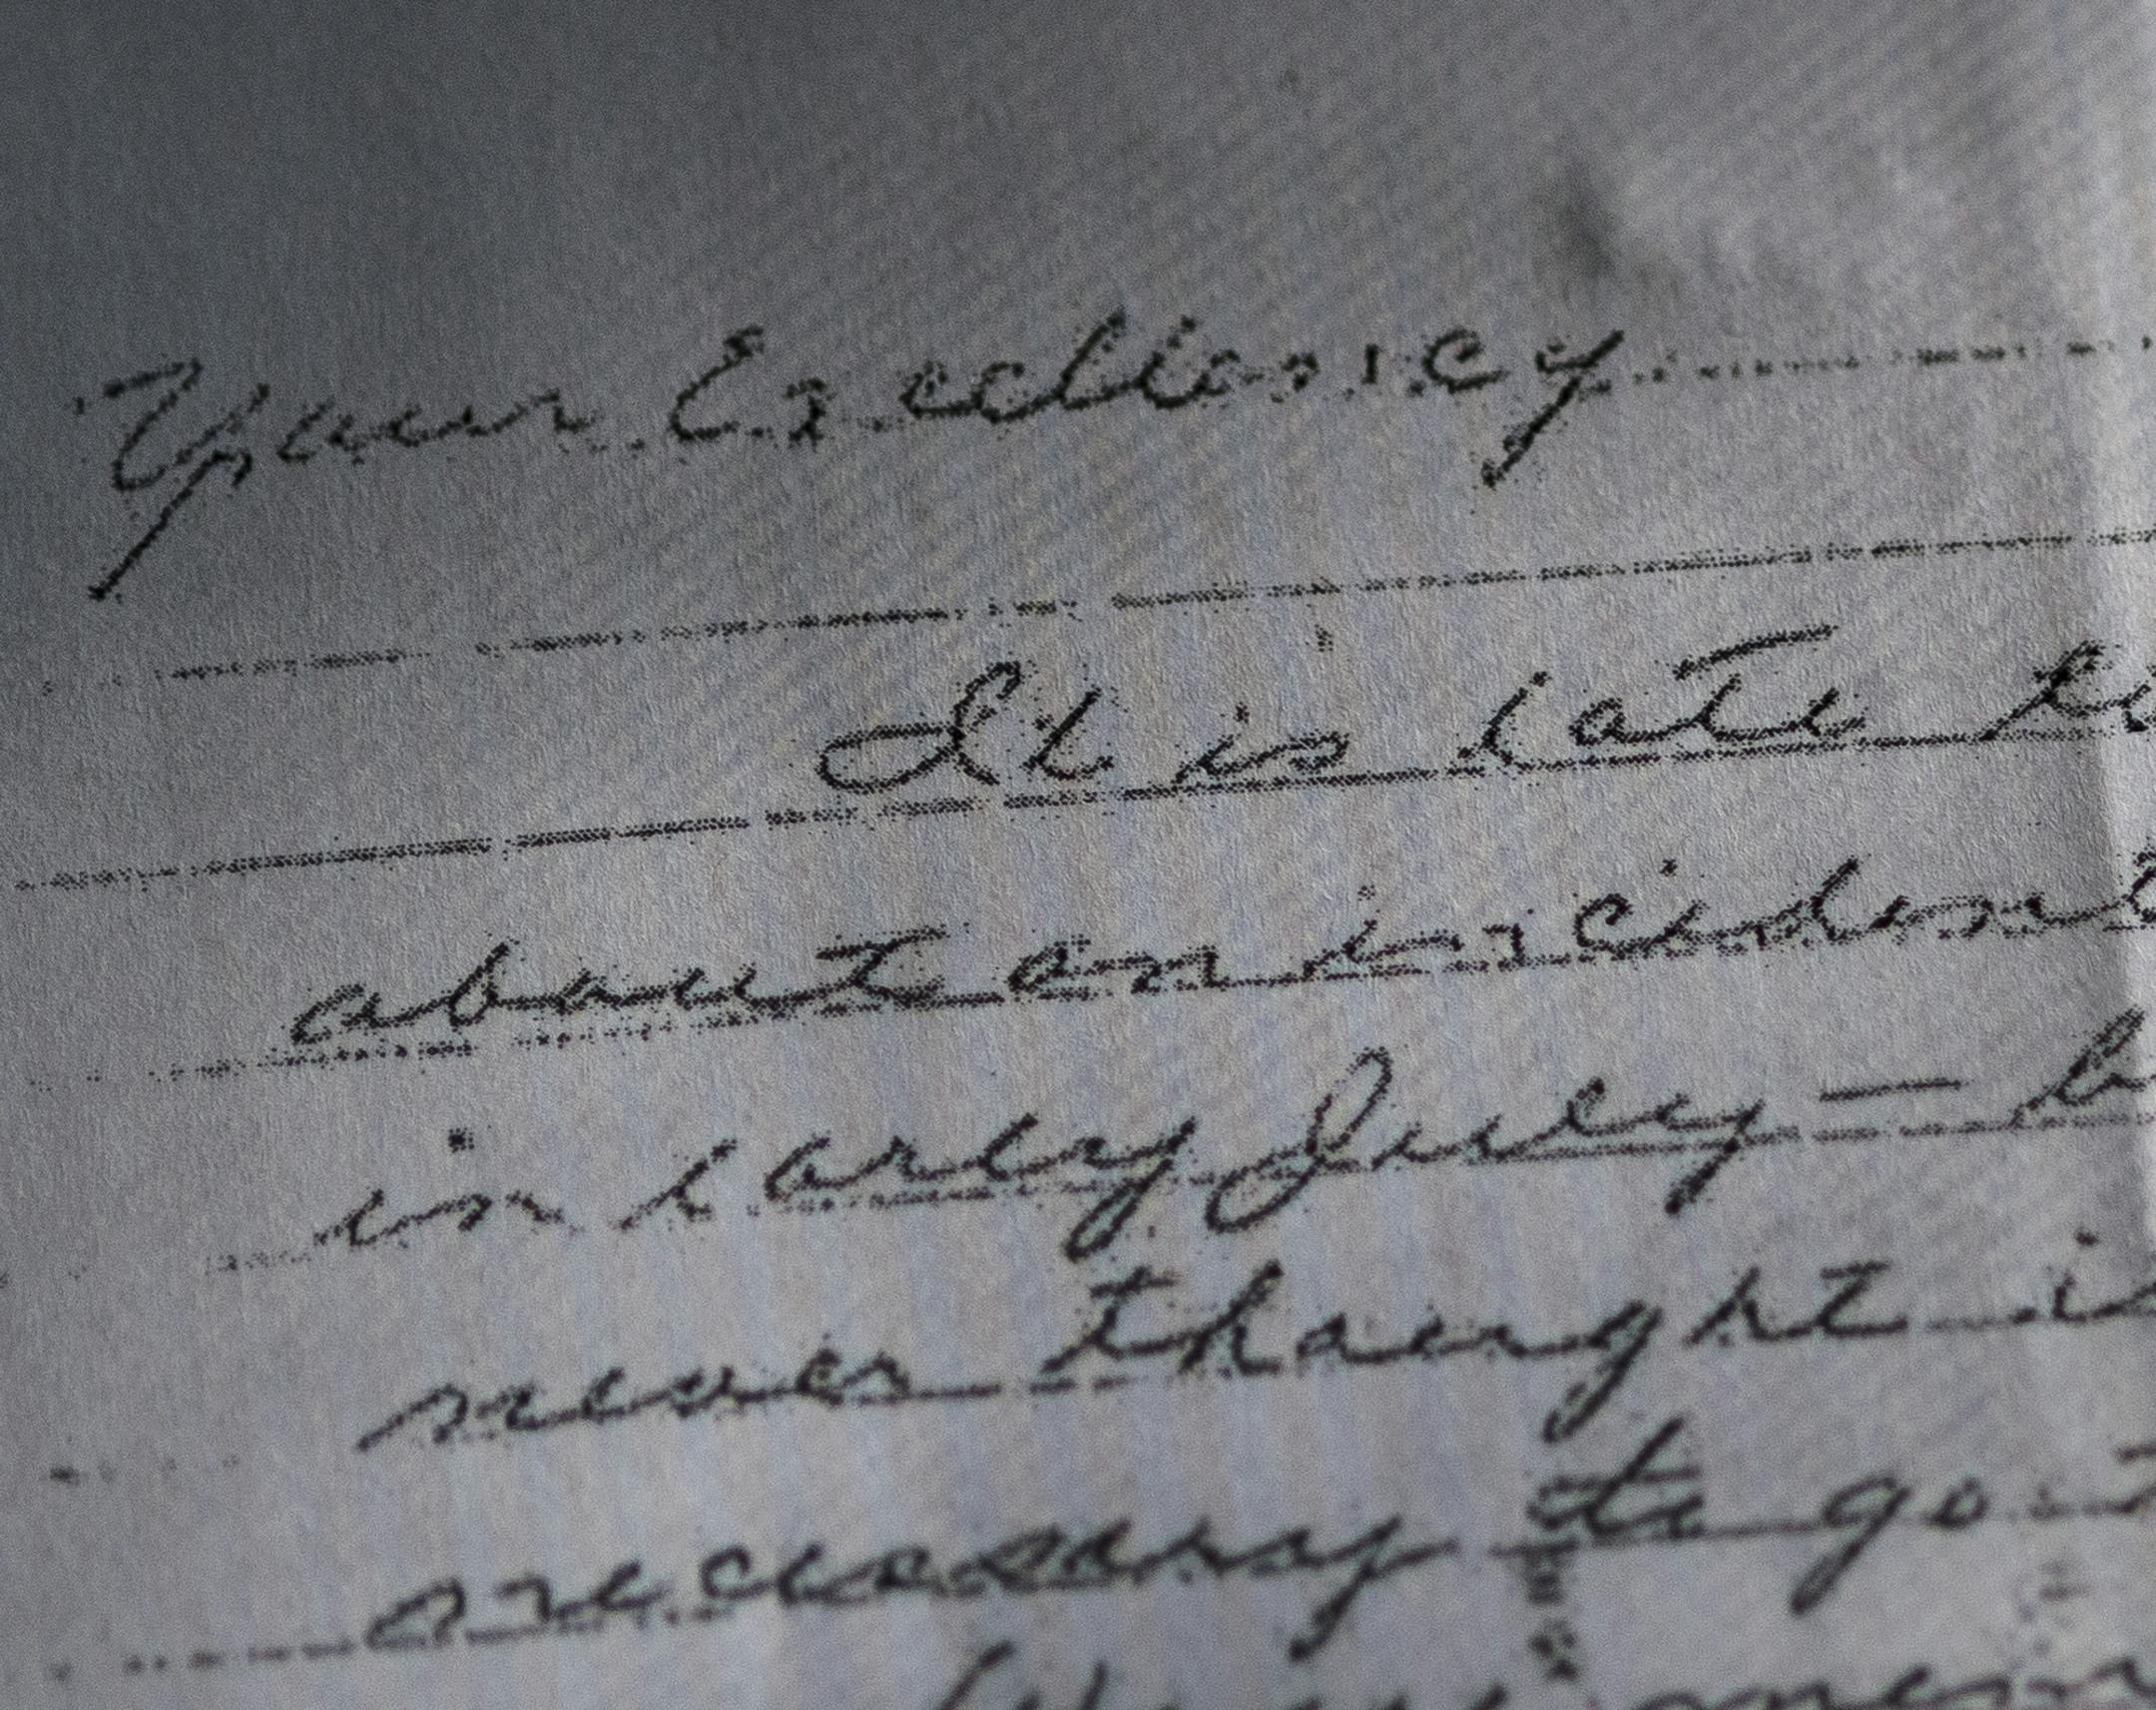 Your Excellency
It is late
about an incident
in early July –
never thought
necessary to go